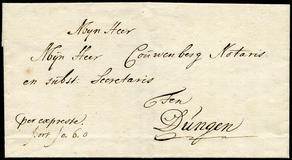 Mijn Heer
Mijn Heer Couwenberg Notaris
en subst. Secretaris
Ten
Dúngen
per expresse
port fo. 6.0